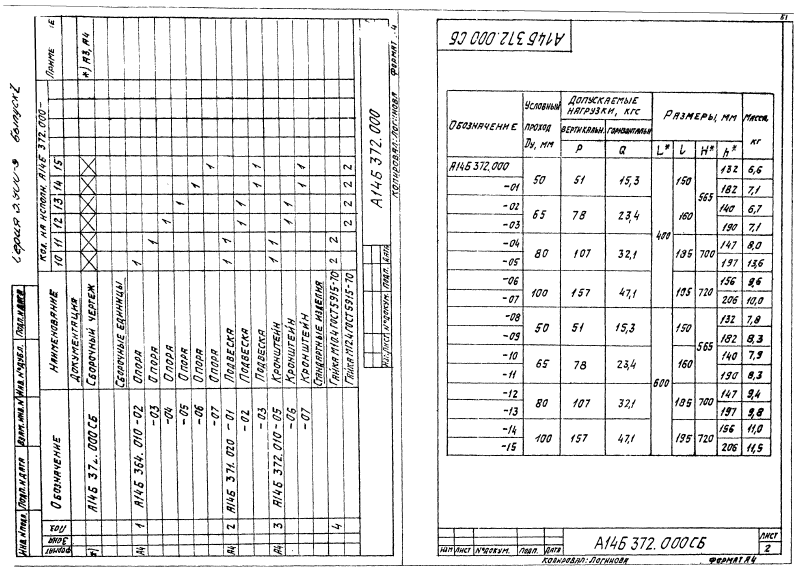 Серия 5.900-9 Выпуск 2
Обозначение Наименование Кол. на исполн. А14Б 372.000- Приме
Формат Зона Поз. 10 11 12 13 14 15
Документация
*) А14Б 372.000 СБ Сборочный чертеж *) А3, А4
Сборочные единицы
А4 1 А14Б 364.010 -02 Опора 1
-03 Опора 1
-04 Опора 1
-05 Опора 1
-06 Опора 1
-07 Опора 1
А4 2 А14Б 371.020 -01 Подвеска 1 1
-02 Подвеска 1 1
-03 Подвеска 1 1
А4 3 А14Б 372.010 -05 Кронштейн 1 1
-06 Кронштейн 1 1
-07 Кронштейн 1 1
Стандартные изделия
4 Гайка М10.4 ГОСТ 5915-70 2 2
Гайка М12.4 ГОСТ 5915-70 2 2 2 2
Инв. № подл. Подп. и дата Взам. инв. № Инв. № дубл. Подп. и дата
Изм. Лист № докум. Подп. Дата
А14Б 372.000
Копировал: Логинова Формат А4
81
А14Б 372.000 СБ
Обозначение Условный проход Dу, мм Допускаемые нагрузки, кгс Размеры, мм Масса, кг
Вертикальн. P Горизонтальн. Q L* l H* h*
А14Б 372.000 50 51 15,3 400 150 565 132 6,6
-01 182 7,1
-02 65 78 23,4 160 140 6,7
-03 190 7,1
-04 80 107 32,1 185 700 147 8,0
-05 197 13,6
-06 100 157 47,1 195 720 156 9,6
-07 206 10,0
-08 50 51 15,3 600 150 565 132 7,8
-09 182 8,3
-10 65 78 23,4 160 140 7,9
-11 190 8,3
-12 80 107 32,1 185 700 147 9,4
-13 197 9,8
-14 100 157 47,1 195 720 156 11,0
-15 206 11,5
Изм Лист № докум. Подп. Дата
А14Б 372.000 СБ
Лист 2
Копировал: Логинова Формат А4